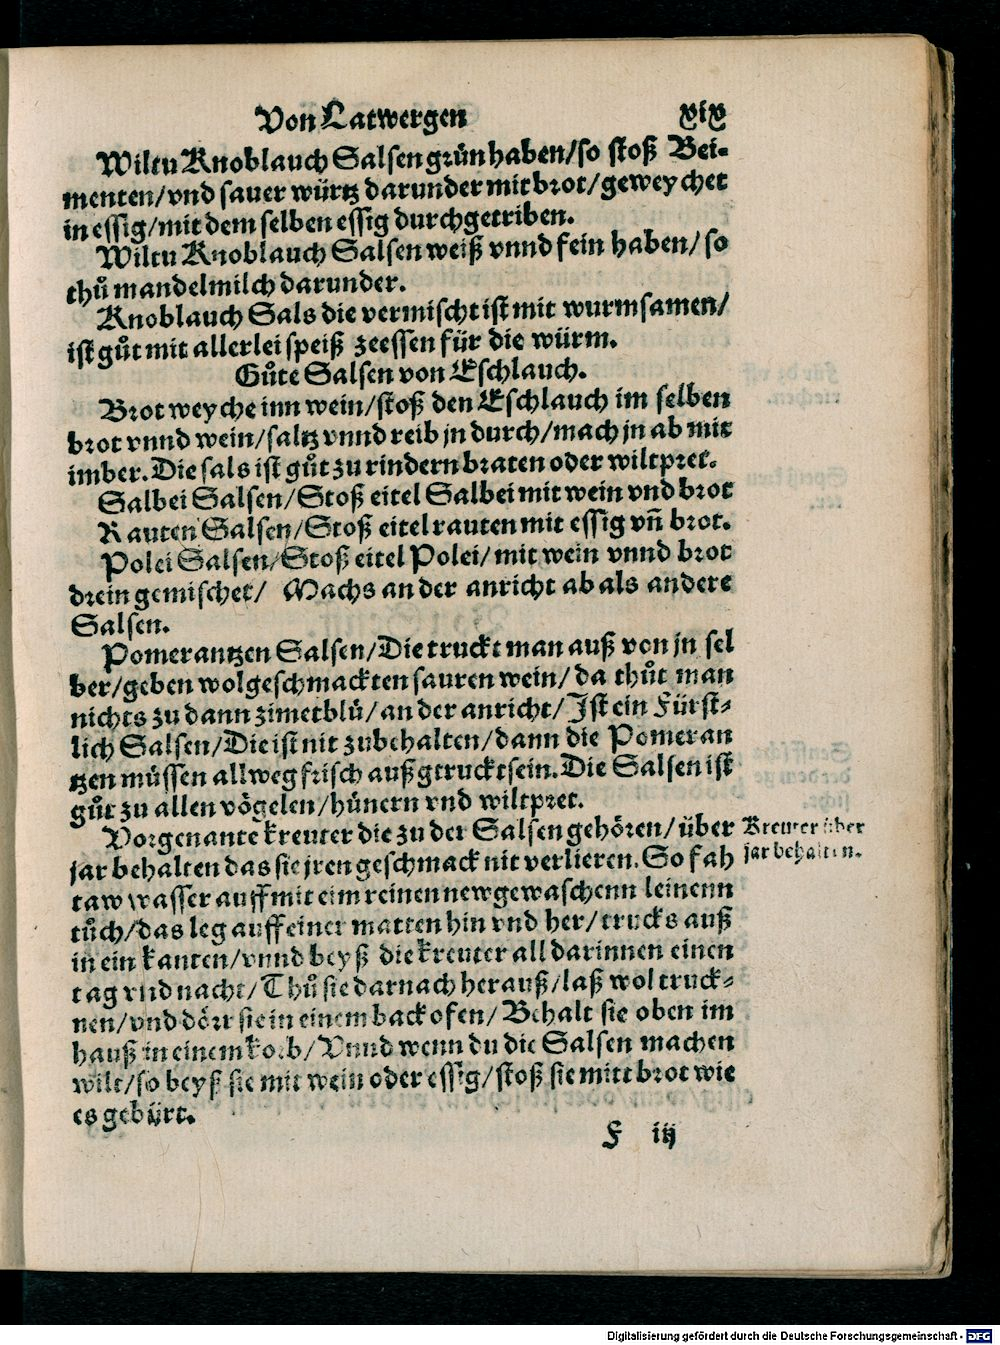 Von Latwergen xix
Wiltu Knoblauch Salsen grün haben/so stoß Bei-
menten/vnd sauer würtz darunder mit brot/geweychet
in essig/mit dem selben essig durchgetriben.
Wiltu Knoblauch Salsen weiß vnnd fein haben/so
thů mandelmilch darunder.
Knoblauch Sals die vermischt ist mit wurmsamen/
ist gůt mit allerlei speiß zeessen für die würm.
Gůte Salsen von Eschlauch.
Brot weyche inn wein/stoß den Eschlauch im selben
brot vnnd wein/saltz vnnd reib jn durch/mach jn ab mit
imber. Die sals ist gůt zu rindern braten oder wiltpret.
Salbei Salsen/Stoß eitel Salbei mit wein vnd brot
Rauten Salsen/Stoß eitel rauten mit essig vñ brot.
Polei Salsen/Stoß eitel Polei/mit wein vnnd brot
drein gemischet/ Machs an der anricht ab als andere
Salsen.
Pomerantzen Salsen/Die truckt man auß von jn sel
ber/geben wolgeschmackten sauren wein/da thůt man
nichts zu dann zimetblü/an der anricht/Ist ein Fürst-
lich Salsen/Die ist nit zubehalten/dann die Pomeran
tzen müssen allweg frisch außgtruckt sein. Die Salsen ist
gůt zu allen vögelen/hünern vnd wiltpret.
Vorgenante kreuter die zu der Salsen gehören/über
jar behalten das sie jren geschmack nit verlieren. So fah
taw wasser auff mit eim reinen new gewaschenn leinenn
tůch/das leg auff einer matten hin vnd her/trucks auß
in ein kanten/vnnd beyß die kreuter all darinnen einen
tag vnd nacht/Thů sie darnach herauß/laß wol truck-
nen/vnd dörr sie in einem back ofen/Behalt sie oben im
hauß in einem korb/Vnnd wenn du die Salsen machen
wilt/so beyß sie mit wein oder essig/stoß sie mitt brot wie
es gebürt.
Kreuter über
jar behalten.
F iij
Digitalisierung gefördert durch die Deutsche Forschungsgemeinschaft - DFG